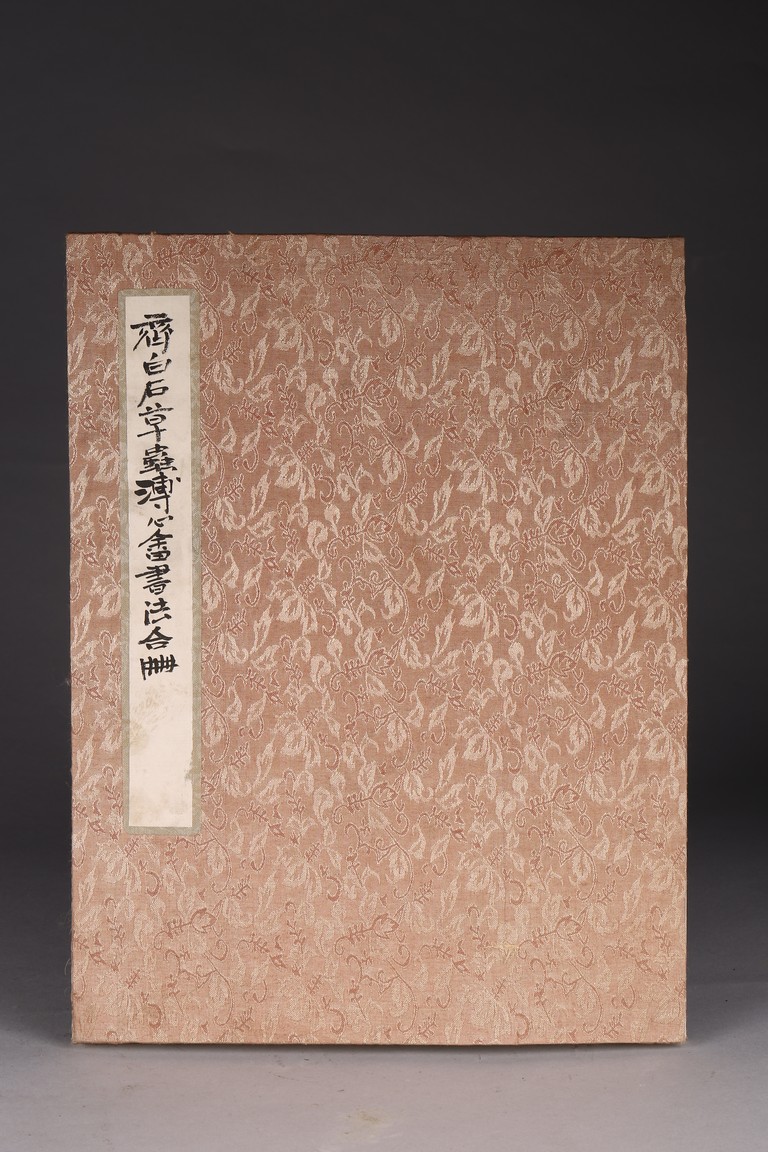 齊白石草蟲溥心畬書法合冊